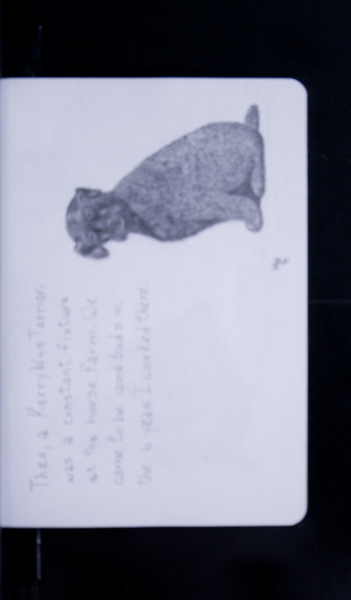 Theo, a Kerry Blue Terrier.
was a constant fixture
at the horse farm. We
came to be good buds in
the 6 years I worked there.